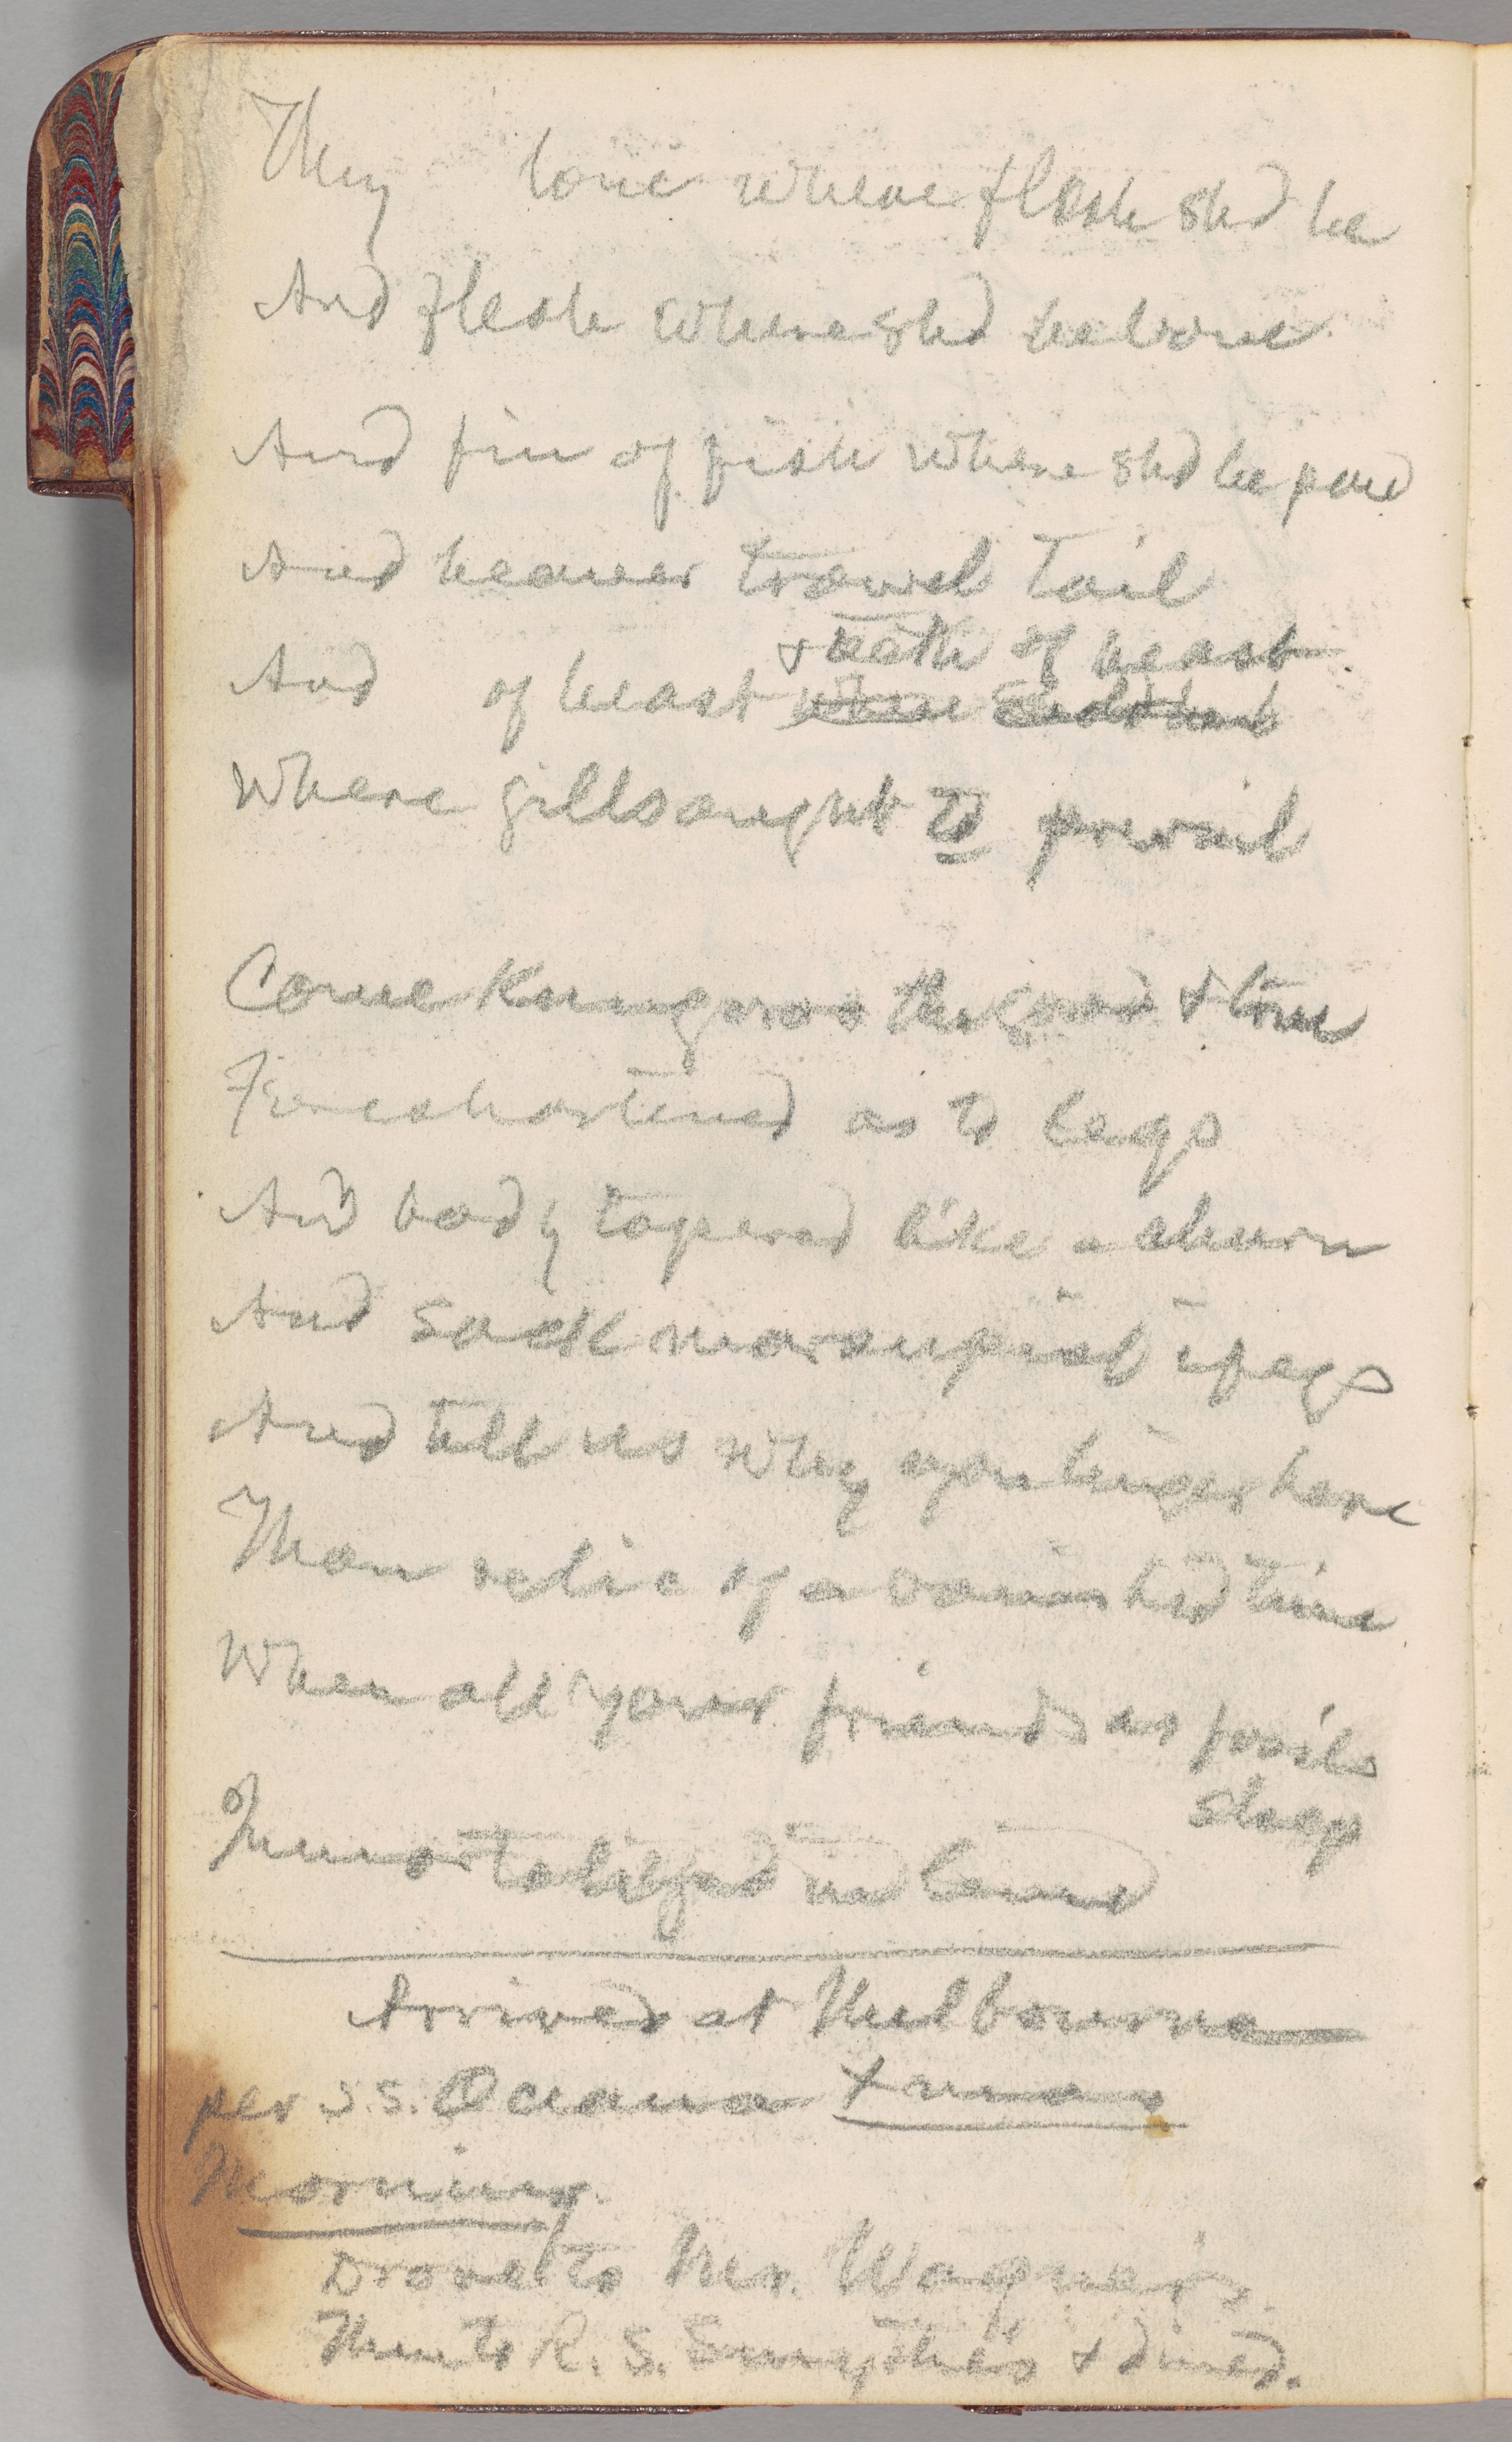 They bone where flesh shd be
And flesh where shd be bone
And fin of fish where shd be paw
And beaver trowel tail
And of beast & teeth of beast
Where gills ought to prevail
Come Kangaroo the good & true
Foreshortened as to legs
And body tapered like a churn
And sack marsupial i' fegs
And tell us why you linger here
Thou relic of a vanished time
When all your friends as fosils
sleep
Immortalized in lime
Arrived at Melbourne
per S.S. Oceana Xmas
Morning.
Drove to Mr. Wagner's.
Then to R. S. Smythe's & dined.